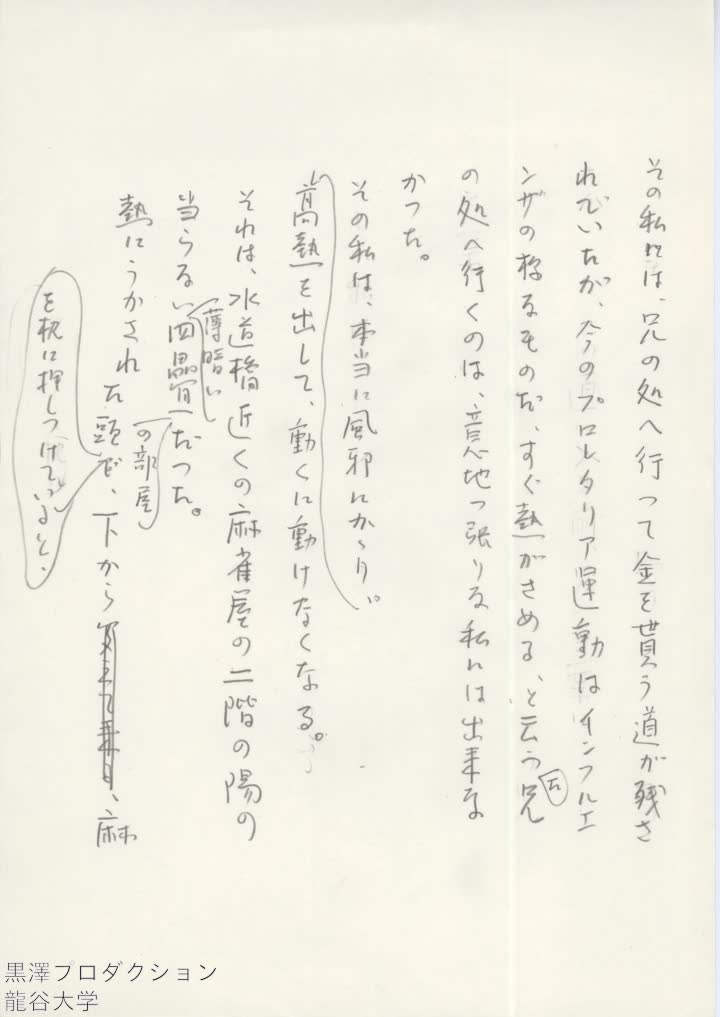 その私には、兄の処へ行つて金を貰う道が残さ
れていたが、今のプロレタリア運動はインフルエ
ンザの様なものだ、すぐ熱がさめる、と云う兄
た
の処へ行くのは、意地つ張りな私には出来な
かつた。
その私は、本当に風邪にかゝり、
高熱を出して、動くに動けなくなる。
それは、水道橋近くの麻雀屋の二階の陽の
薄暗い
当らない四畳半だつた。
の部屋
熱にうかされた頭で、下から、麻
を枕に押しつけていると、
黒澤プロダクション
龍谷大学